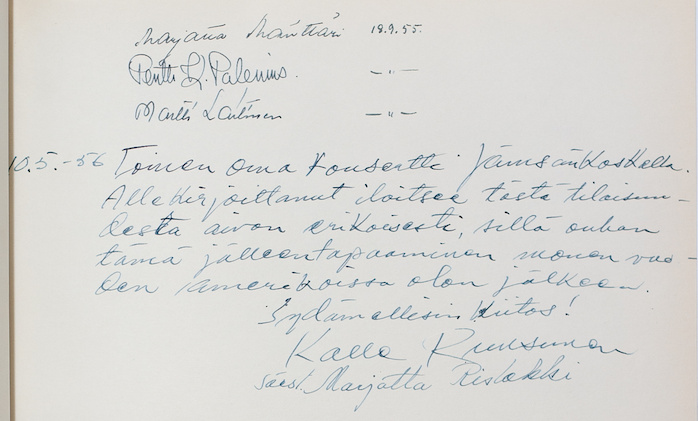 Marjatta Mänttäri 18.9.55.
Pentti L. Palenius. — " —
Martti Laitinen — " —
10.5.-56 Toinen oma konsertti Jämsänkoskella.
Allekirjoittanut iloitsee tästä tilaisuu-
desta aivan erikoisesti, sillä onhan
tämä jälleentapaaminen monen vuo-
den amerikoissa olon jälkeen.
Sydämellisin kiitos!
Kalle Ruusunen
säest. Marjatta Ristokki